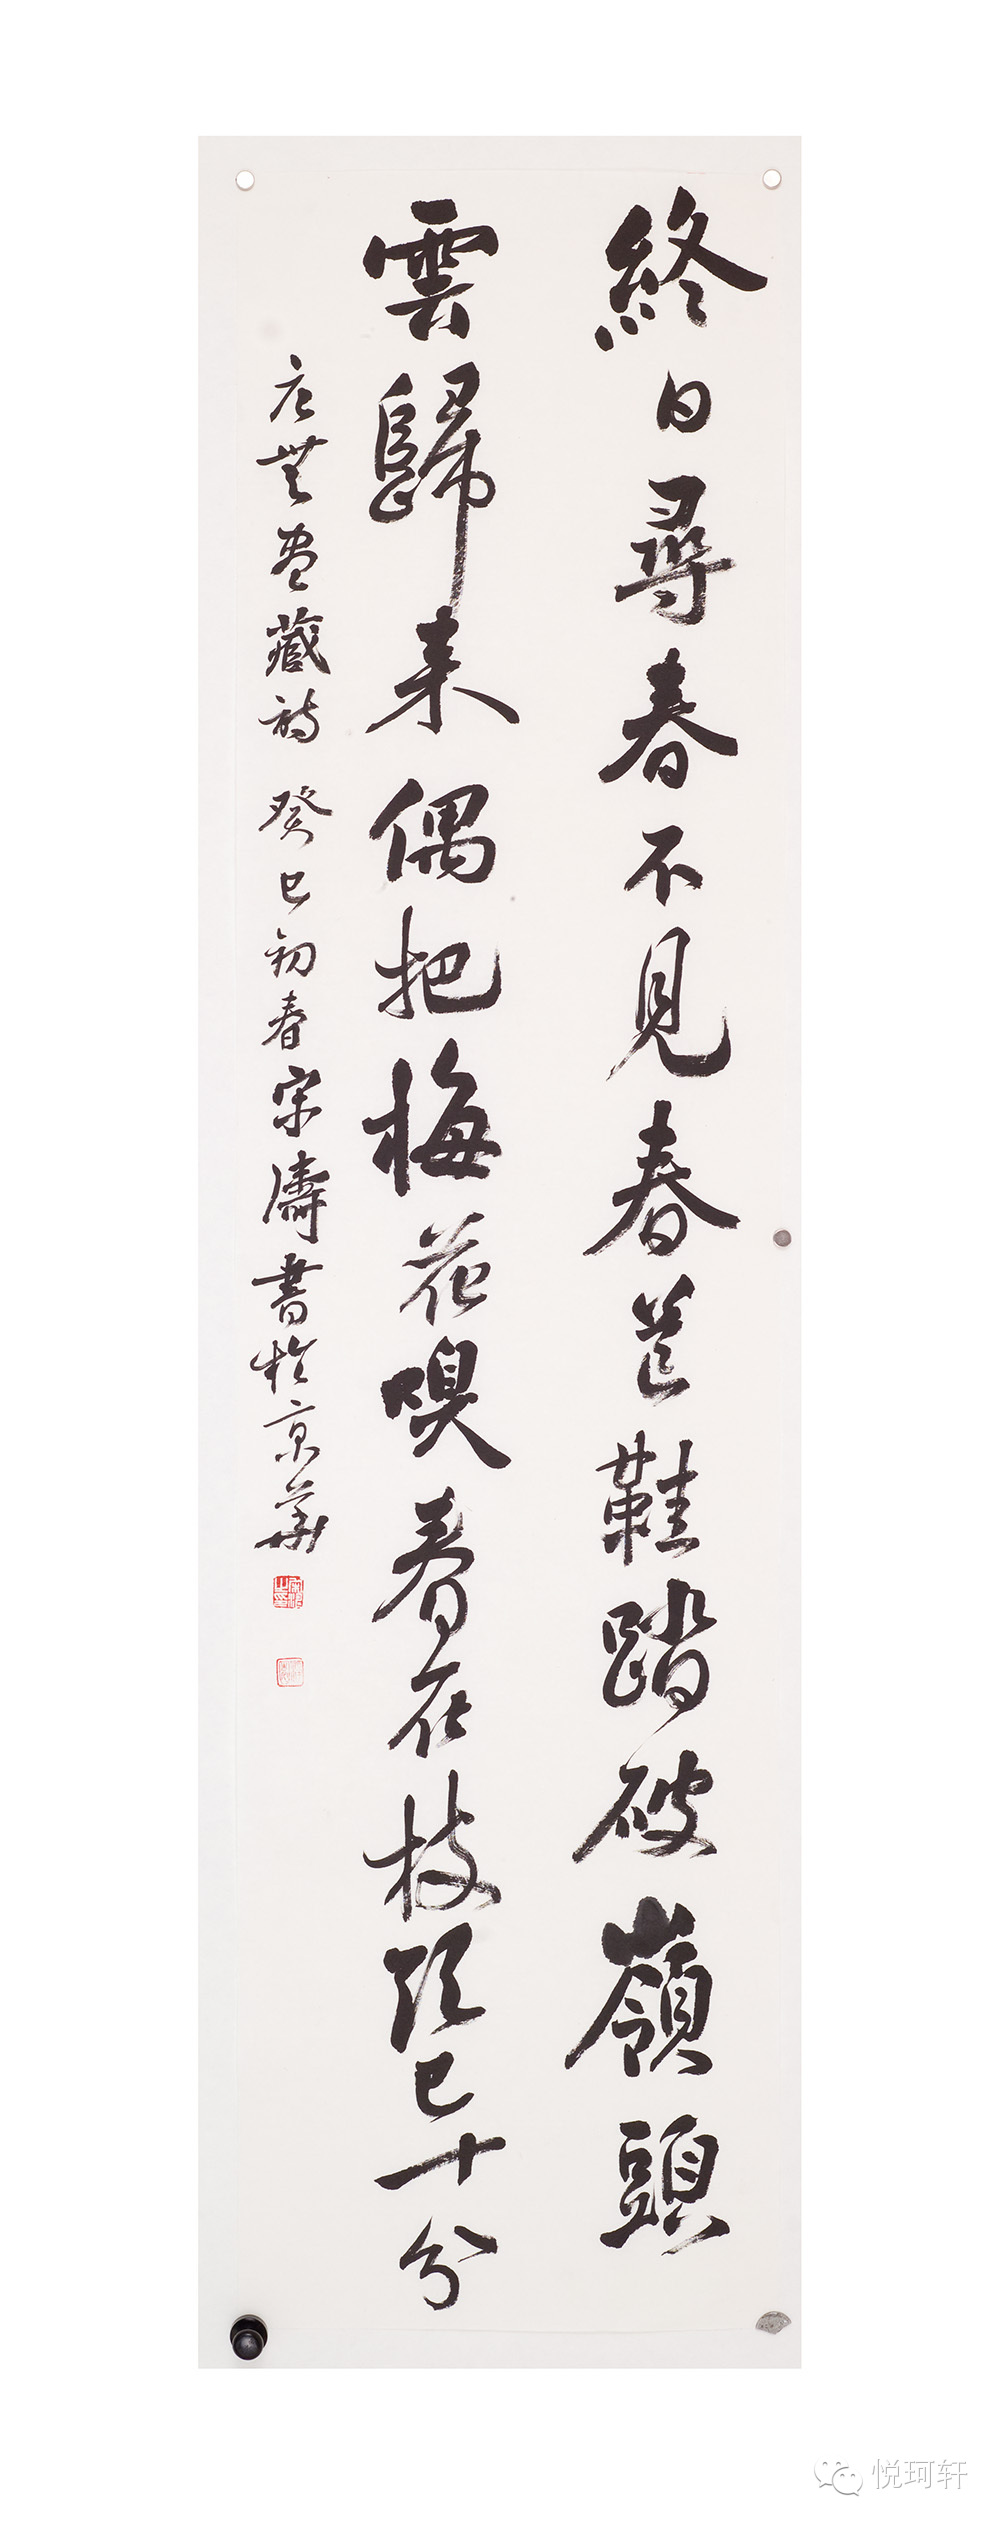 終日尋春不見春芒鞋踏破嶺頭
雲歸来偶把梅花嗅春在枝頭已十分
唐無盡藏詩 癸巳初春宋濤書於京華
悦珂轩